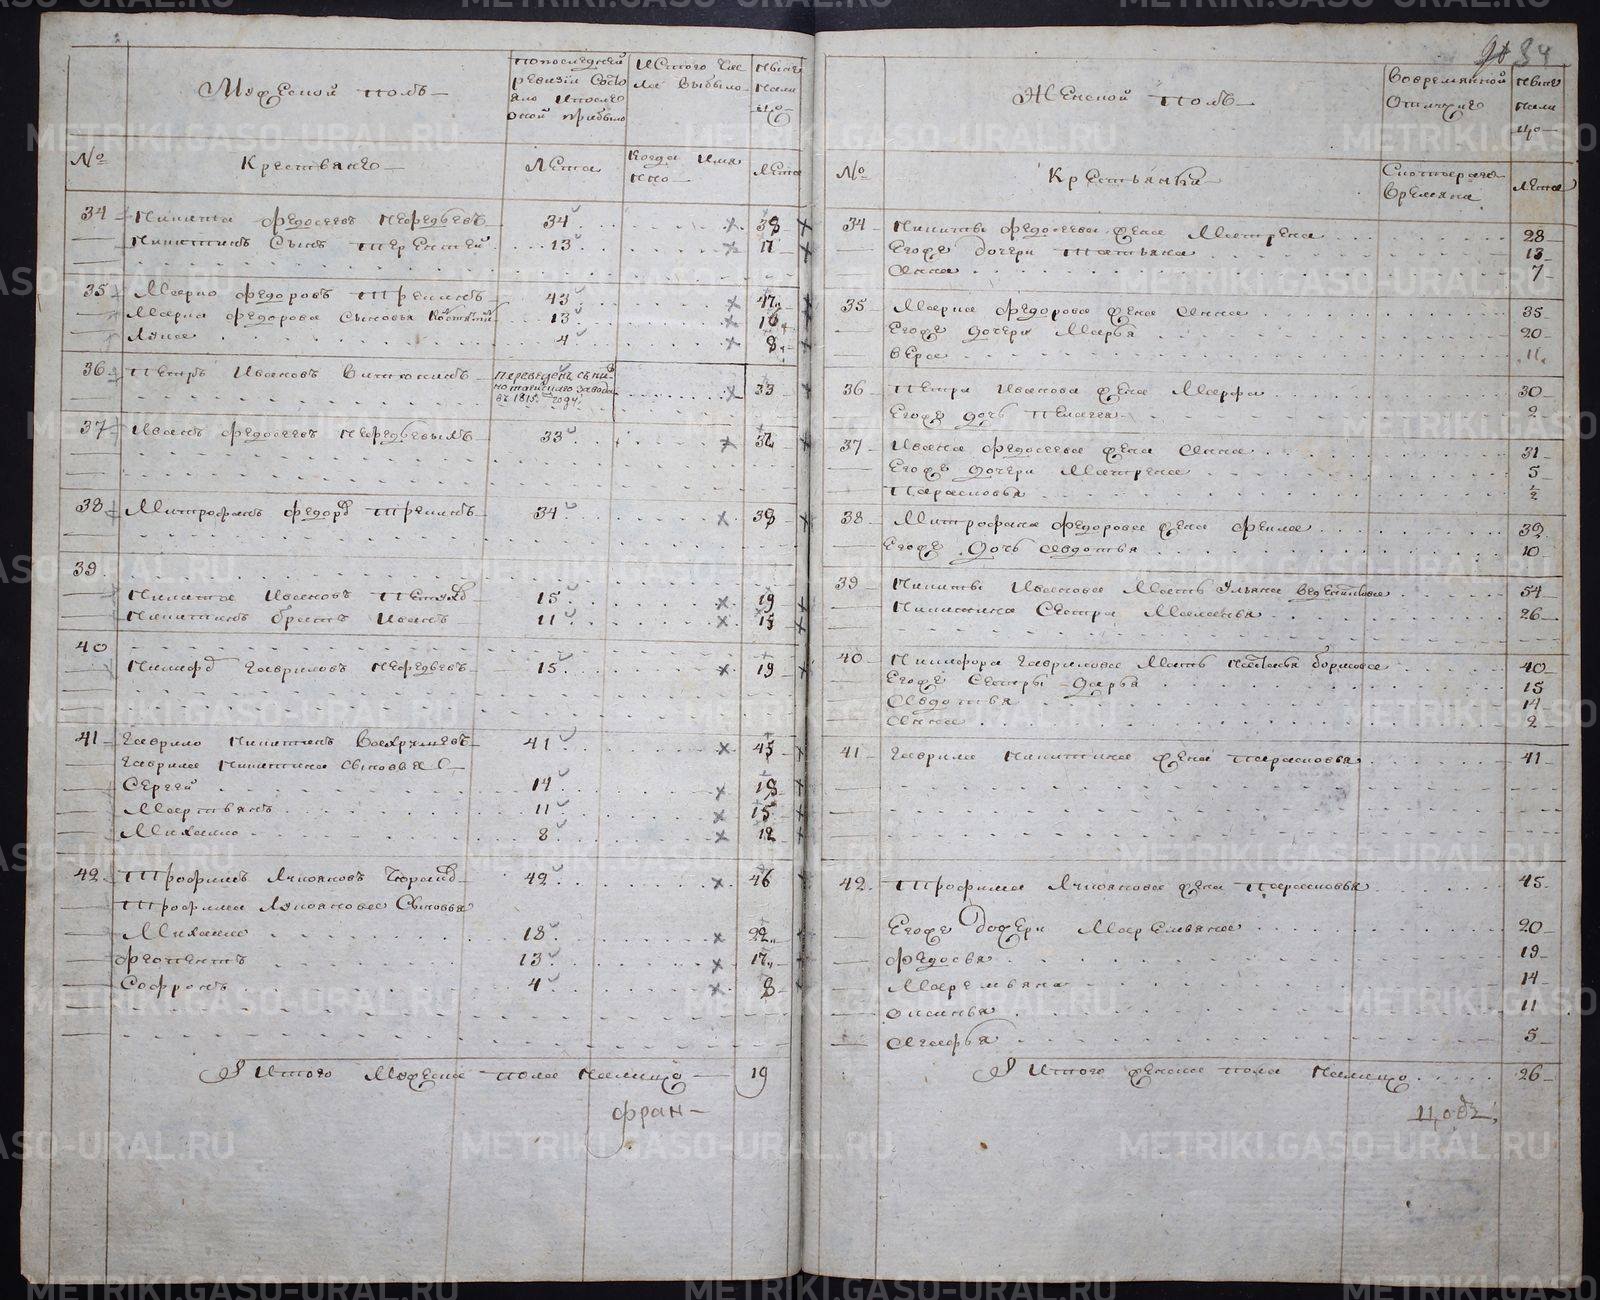 84
Мужеской полъ
по последней ревизiи состояло и после оной прибыло
Изтого числа выбыло
Ныне на лицо
№
Крестьяне
Лета
Когда имянно
Лета
34 Никита Федосеевъ Нефедьевъ 34 38
Никитинъ сынъ Терентей 13 17
35 Марко Федоровъ 43 47
Марка Федорова сыновья 13
Лука 4 8
36 Петръ Ивановъ переведенъ съ завода въ 1815 году 33
37 Иванъ Федосеевъ Нефедьевыхъ 33
38 Митрофанъ Федоровъ 34 38
39
Никита Ивановъ 15 19
Никитинъ братъ Иванъ 11 15
40
Никифоръ Гавриловъ Нефедьевъ 15 19
41 Гаврило Никитинъ 41 45
Гаврила Никитина сыновья
Сергей 14 18
Мартьянъ 11 15
Михайло 8 12
42 Трофимъ Лукояновъ 42 46
Трофима Лукоянова сыновья
Михайло 18 22
Феопентъ 13 17
Софронъ 4 8
Итого мужеска пола налицо 19
фран-
Женской полъ
Во временной отлучке
Ныне на лицо
№
Крестьянки
Скоторого времяни
Лета
34 Никиты Федосеева жена Матрена 28
Егоже дочери Татьяна 13
Анна 7
35 Марка Федорова жена Анна 35
Егоже дочери Марья 20
Вера 11
36 Петра Иванова жена Марфа 30
Егоже дочь Пелагея 2
37 Ивана Федосеева жена Анна 31
Егоже дочери Матрена 5
Парасковья ½
38 Митрофана Федорова жена Фекла 39
Егоже дочь Авдотья 10
39 Никиты Иванова мать Ульяна 54
Никитина сестра Маланья 26
40 Никифора Гаврилова мать Наталья Борисова 40
Егоже сестры Дарья 15
Авдотья 14
Анна 2
41 Гаврила Никитина жена Парасковья 41
42 Трофима Лукоянова жена Парасковья 45
Егоже дочери Маремьяна 20
Федосья 19
Маремьяна 14
Аксинья 11
Агафья 5
Итого женска пола налицо 26